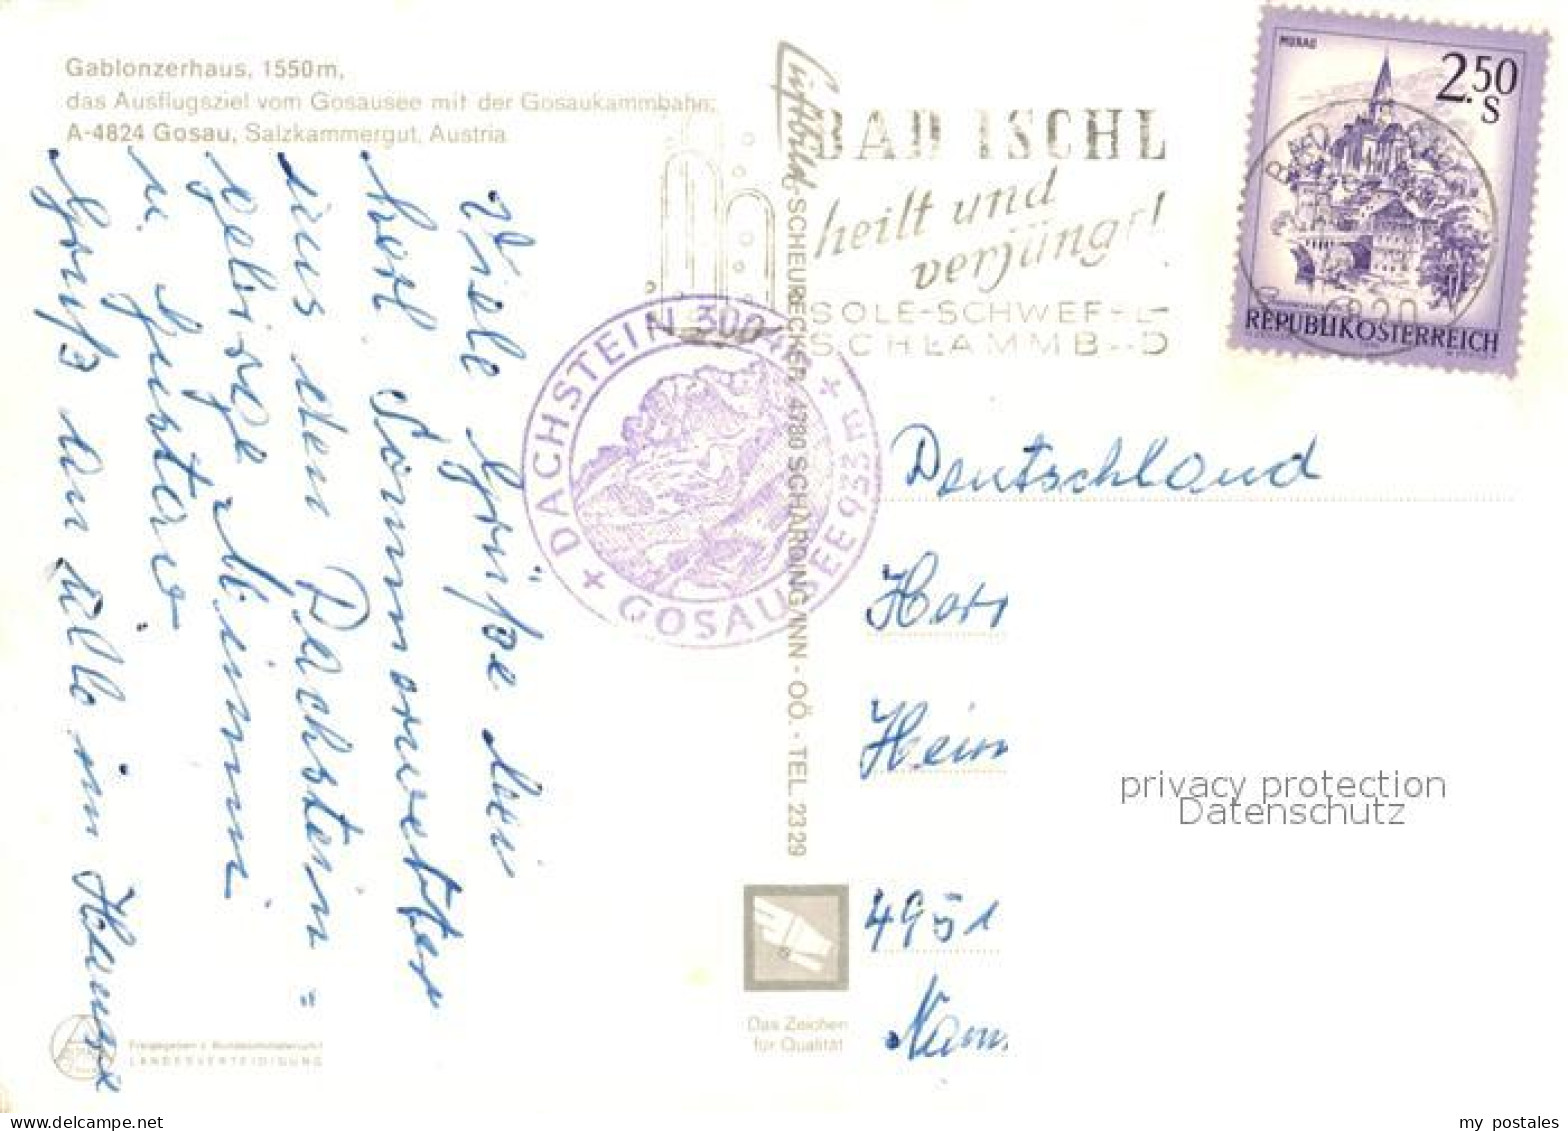 Gablonzerhaus, 1550 m,
das Ausflugsziel vom Gosausee mit der Gosaukammbahn;
A-4824 Gosau, Salzkammergut, Austria
Viele Grüße bei
herrl Sommerwetter
aus dem Dachstein=
gebirge Minni
u. Gustav
Gruß an alle im Hause
Freigegeben v. Bundesministerium f.
LANDESVERTEIDIGUNG
Luftbild: SCHEURECKER, 4780 SCHÄRDING/INN - OÖ. - TEL. 2329
Das Zeichen
für Qualität
BAD ISCHL
heilt und
verjüngt!
SOLE-SCHWEFEL-
SCHLAMMBAD
DACHSTEIN 3004 m + GOSAUSEE 933 m +
MURAU
2.50
S
REPUBLIK ÖSTERREICH
4820 BAD
Deutschland
Herr
Hein
4951
Nam
privacy protection
Datenschutz
my postales